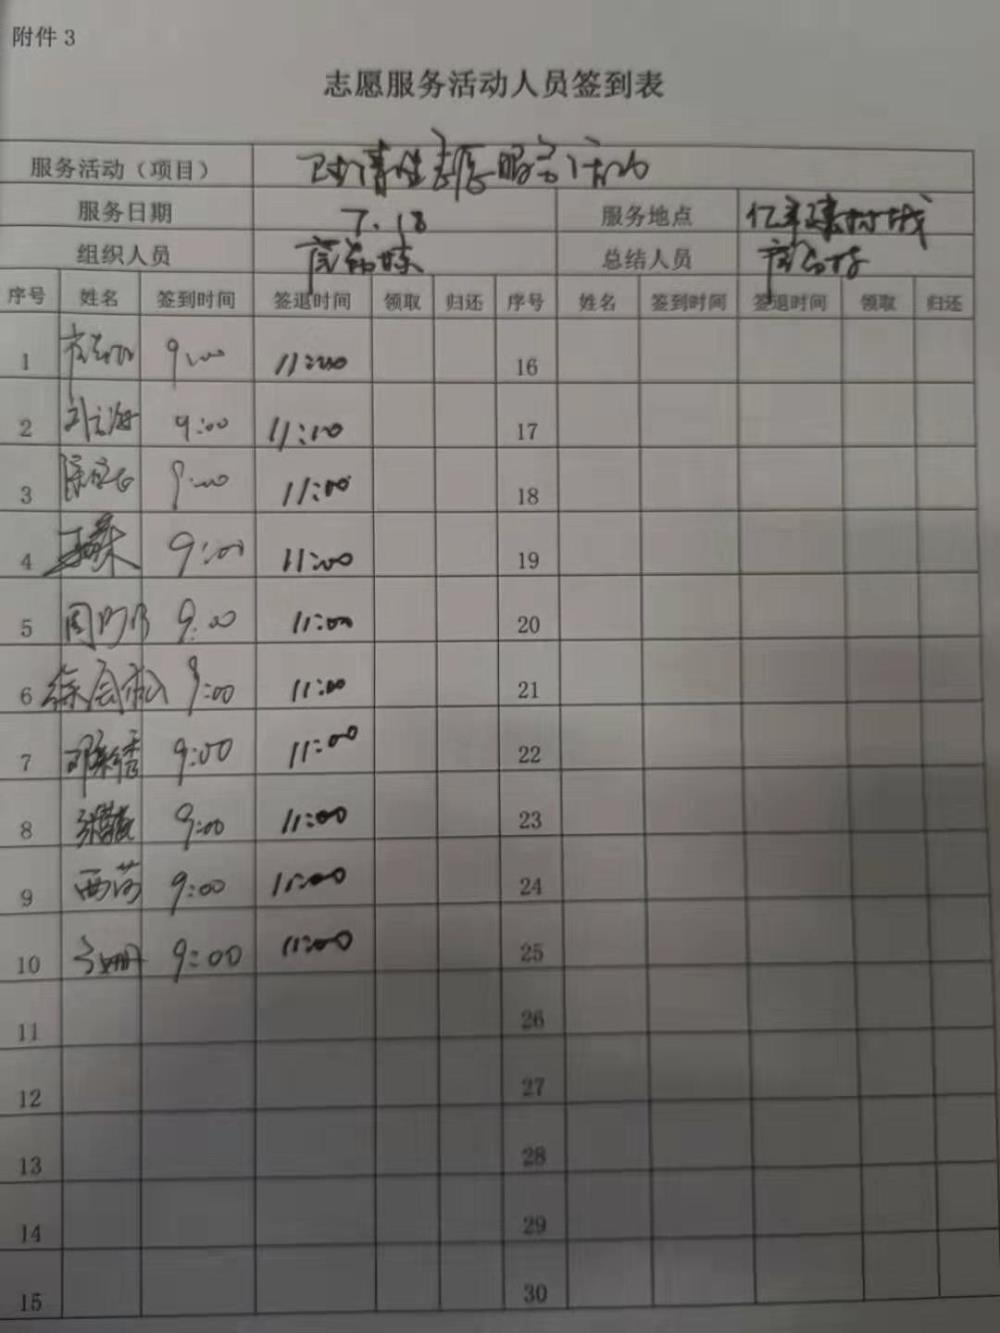 附件 3
志愿服务活动人员签到表
服务活动（项目） 卫清洁志愿服务活动
服务日期 7.18 服务地点
组织人员 总结人员
序号 姓名 签到时间 签退时间 领取 归还 序号 姓名 签到时间 签退时间 领取 归还
1 9:00 11:00 16
2 9:00 11:00 17
3 9:00 11:00 18
4 9:00 11:00 19
5 9:00 11:00 20
6 徐会松 9:00 11:00 21
7 9:00 11:00 22
8 9:00 11:00 23
9 9:00 11:00 24
10 9:00 11:00 25
11 26
12 27
13 28
14 29
15 30